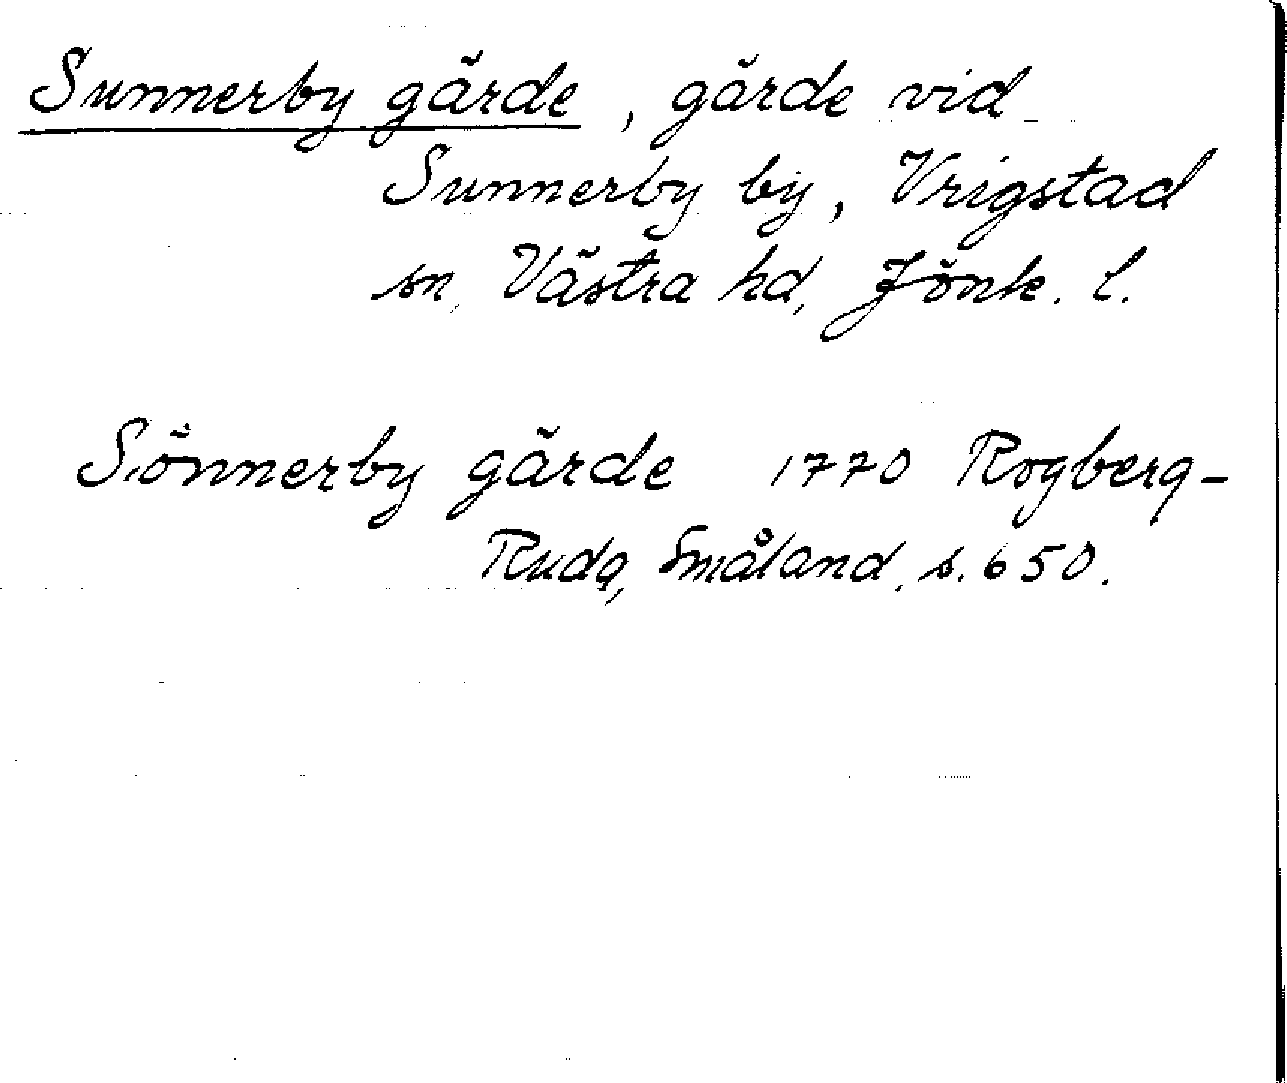 Sunnerby gärde, gärde vid
Sunnerby by, Vrigstad
sn, Västra hd, Jönk. l.
Sönnerby gärde 1770 Rogberg-
Ruda, Småland, s. 650.